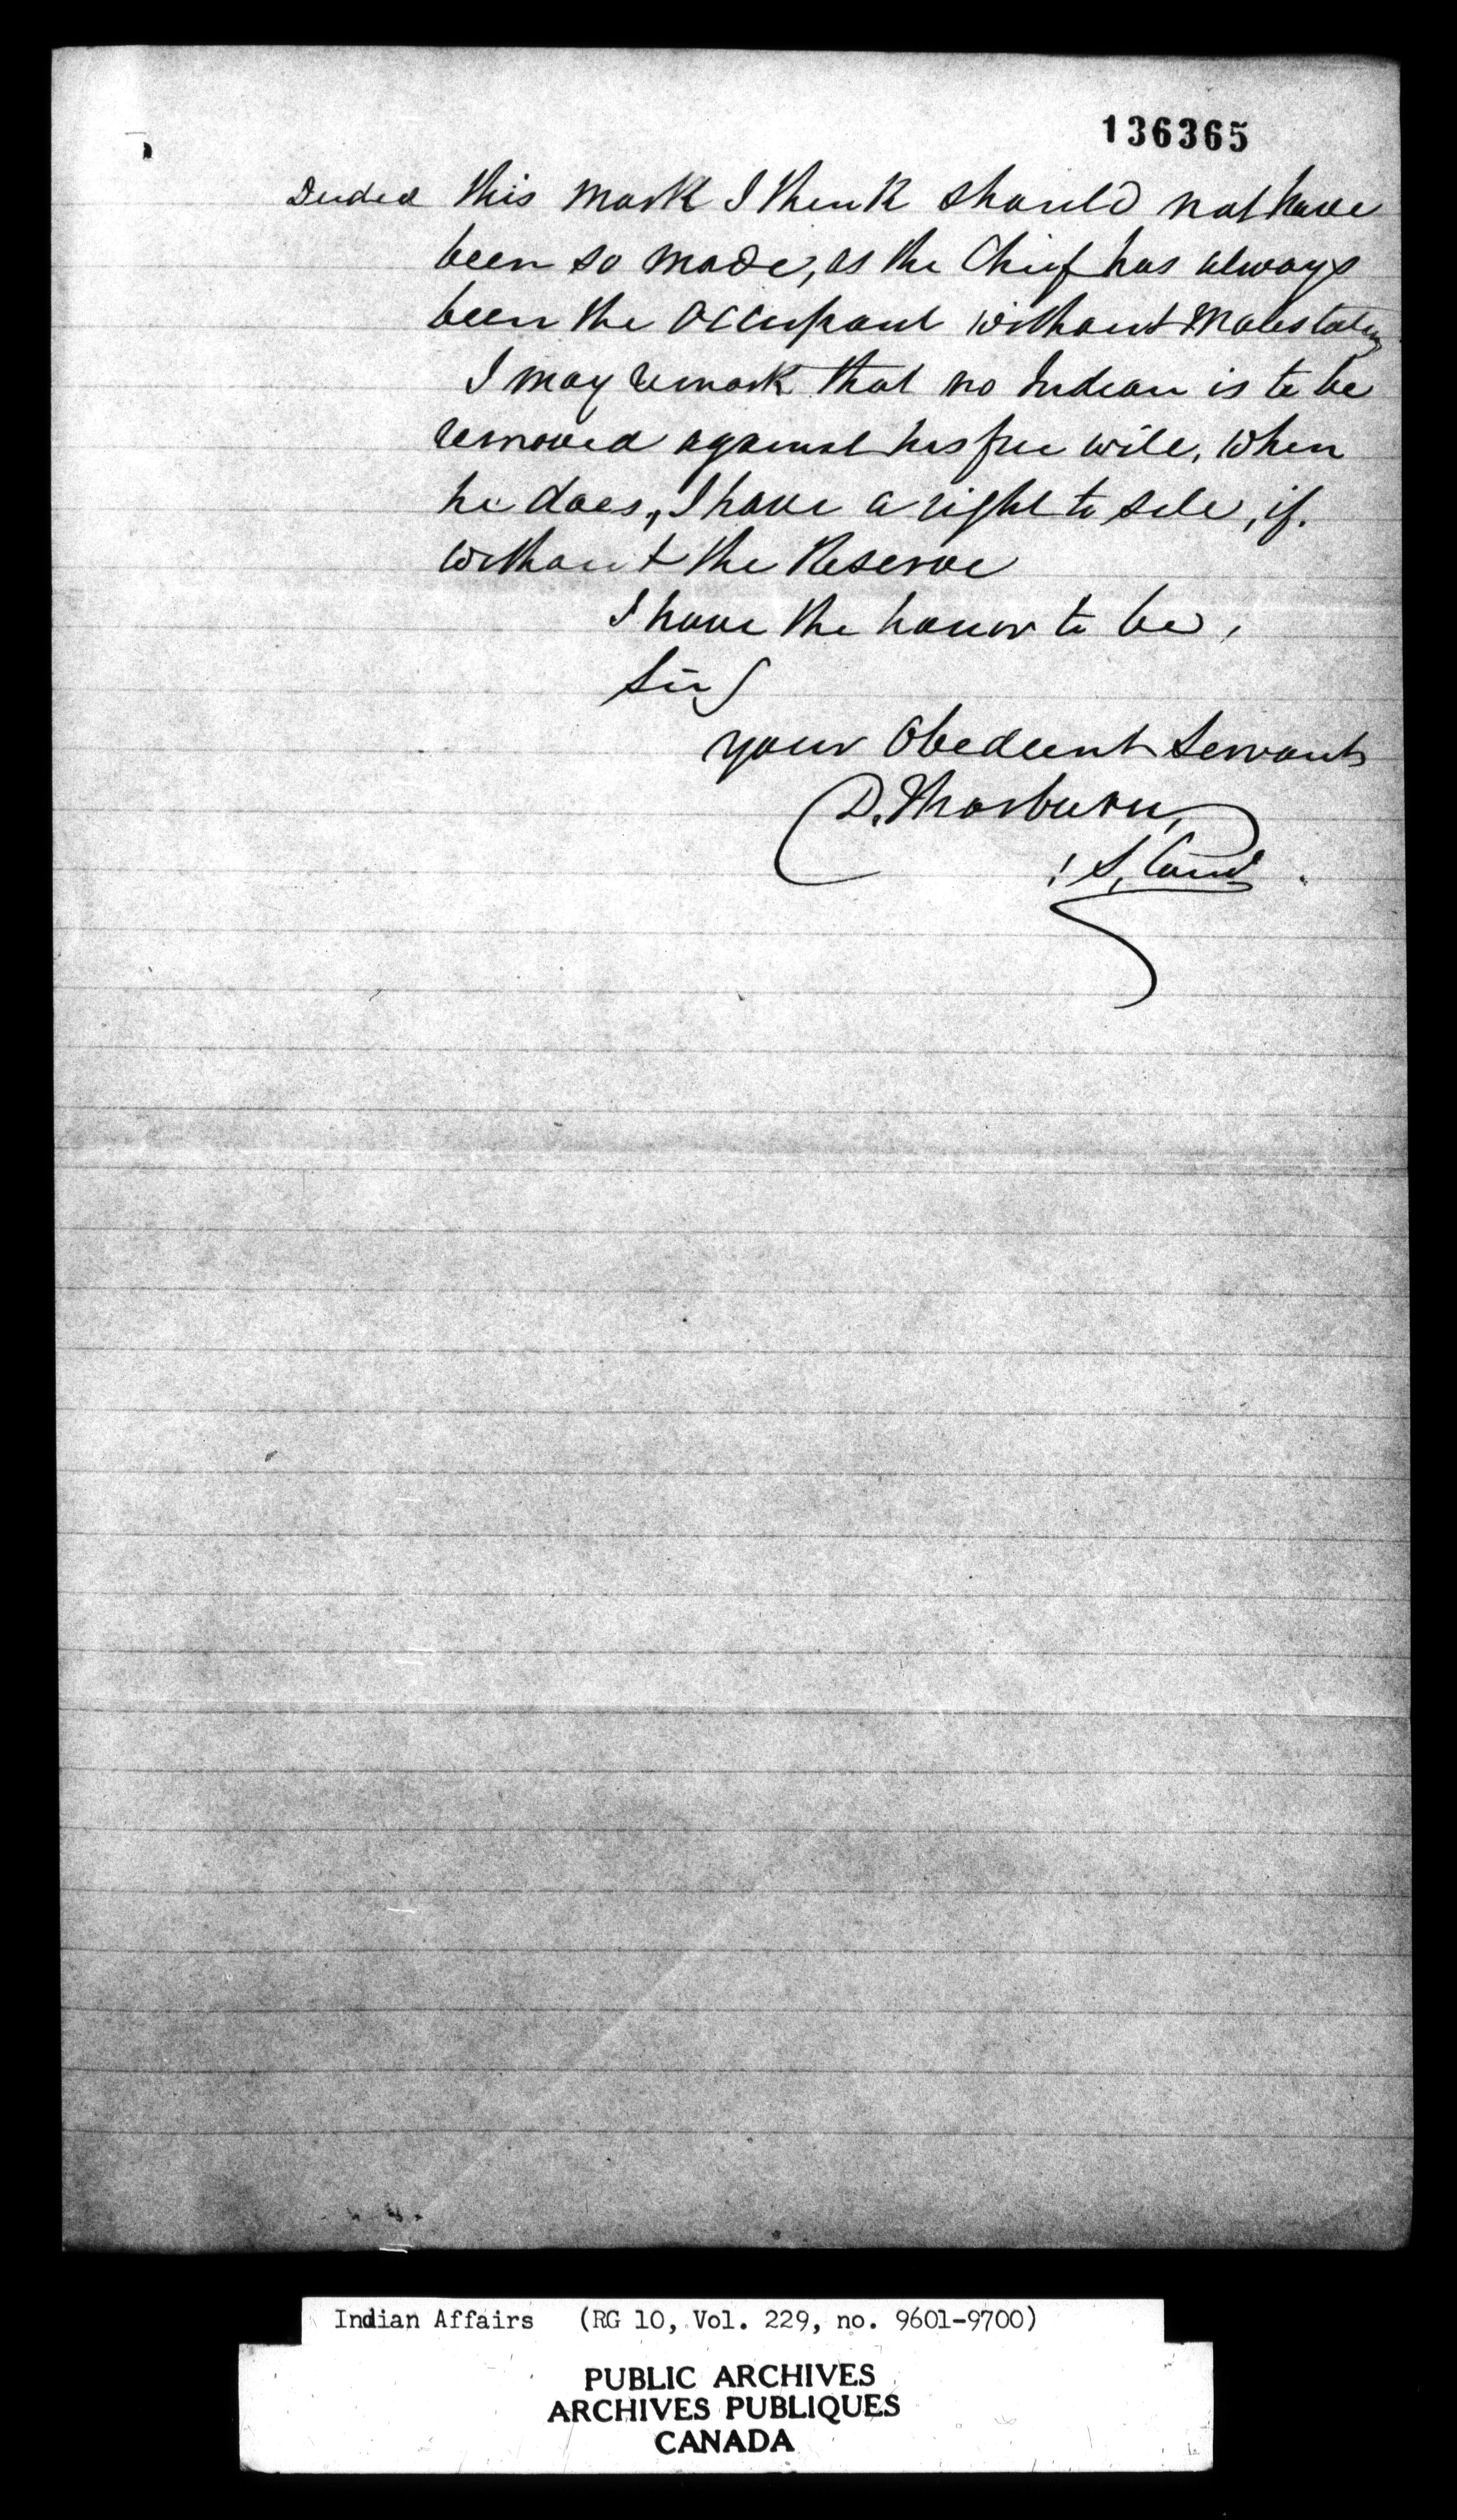 136365
Deeded this mark I think should not have
been so made, as the Chief has always
been the Occupant without Molestation
I may remark that no Indian is to be
removed against his free will, when
he does, I have a right to sele, if.
without the Reserve
I have the honor to be,
Sir,
your Obedient Servant
D. Thorburn,
Indian Affairs (RG 10, Vol. 229, no. 9601-9700)
PUBLIC ARCHIVES
ARCHIVES PUBLIQUES
CANADA